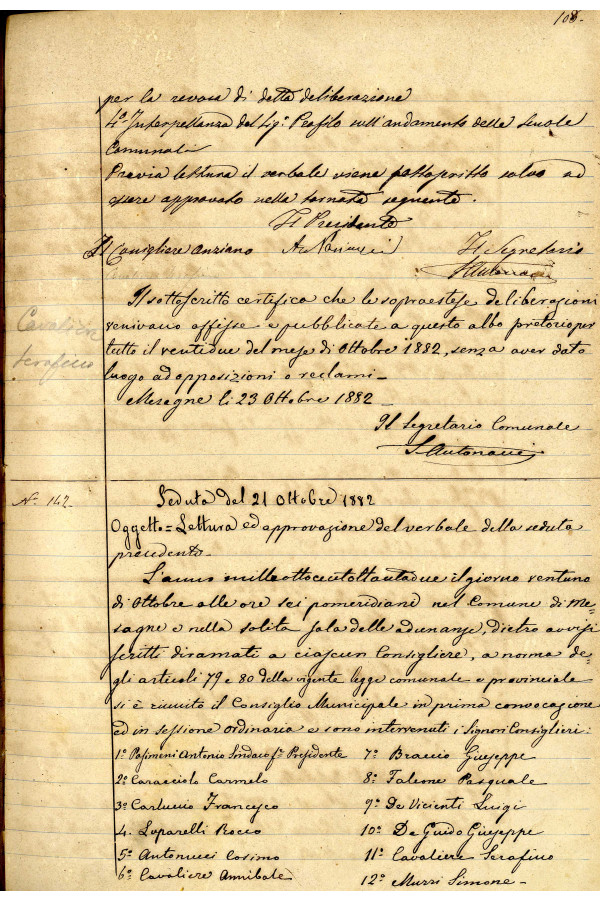 108.
per la revoca di detta deliberazione
4º Interpellanza del Sigr. Profilo sull'andamento delle scuole
Comunali
Previa lettura il verbale viene sottoscritto salvo ad
essere approvato nella tornata seguente.
Il Presidente
Il Consigliere anziano
Il Segretario
S. Antonucci
Il sottoscritto certifica che le sopraestese deliberazioni
venivano affisse e pubblicate a questo albo pretorio per
tutto il ventidue del mese di Ottobre 1882, senza aver dato
luogo ad opposizioni o reclami_
Mesagne li 23 Ottobre 1882_
Il Segretario Comunale
S. Antonucci
Cavaliere
Serafino
Nº 142.
Seduta del 21 Ottobre 1882
Oggetto = Lettura ed approvazione del verbale della seduta
precedente_
L'anno milleottocentottantadue il giorno ventuno
di Ottobre alle ore sei pomeridiane nel Comune di Me-
sagne e nella solita sala delle adunanze, dietro avvisi
scritti diramati a ciascun Consigliere, a norma de-
gli articoli 79 e 80 della vigente legge comunale e provinciale
si è riunito il Consiglio Municipale in prima convocazione
ed in sessione ordinaria e sono intervenuti i Signori Consiglieri:
1º Pasimeni Antonio Sindaco ff. Presidente
7º Braccio Giuseppe
2º Caracciolo Carmelo
8º Falcone Pasquale
3º Carluccio Francesco
9º De Vicienti Luigi
4. Loparelli Rocco
10º De Guido Giuseppe
5º Antonucci Cosimo
11º Cavaliere Serafino
6º Cavaliere Annibale
12º Murri Simone_